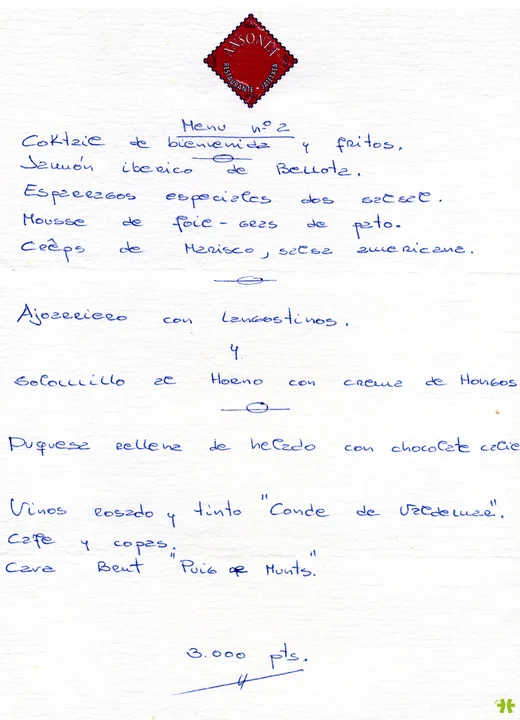 ANSONEA
RESTAURANTE · JATETXEA
Menu nº 2
Coktaie de bienvenida y fritos.
Jamón iberico de Bellota.
Esparragos especiales dos salsas.
Mousse de foie-gras de pato.
Creêps de Marisco, salsa americana.
Ajoarriero con Langostinos.
y
Solomillo al Horno con crema de Hongos
Duquesa rellena de helado con chocolate calie
Vinos rosado y tinto "Conde de Valdemar".
Cafe y copas.
Cava Brut "Puig Munts."
3.000 pts.